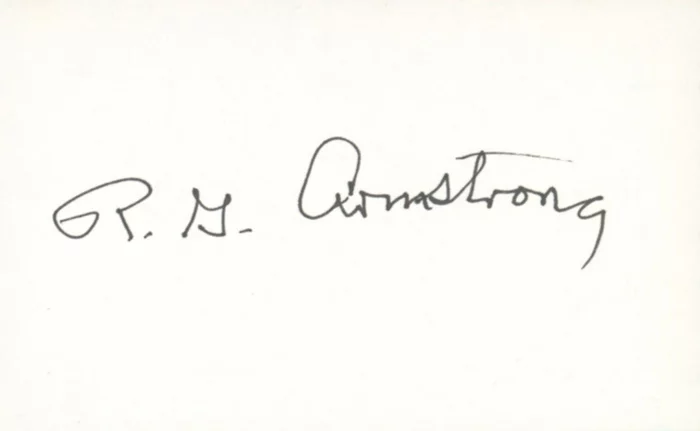 R. G. Armstrong